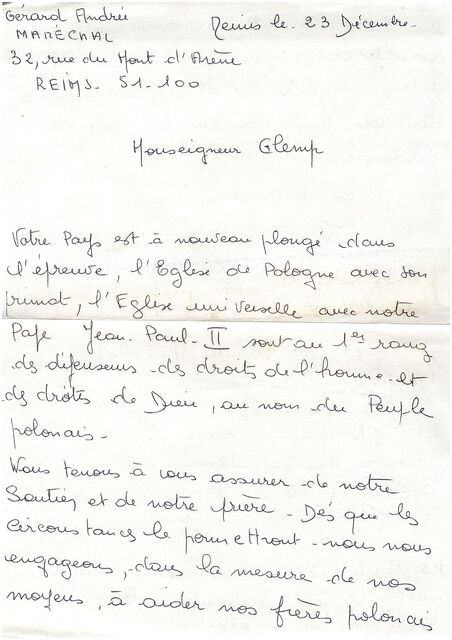 Gérard Andrée
MARÉCHAL
Reims le 23 Décembre.
32, rue du Mont d'Arène
REIMS. 51-100
Monseigneur Glemp
Votre Pays est à nouveau plongé dans
l'épreuve, l'Eglise de Pologne avec son
primat, l'Eglise universelle avec notre
Pape Jean-Paul-II sont au 1er rang
des défenseurs des droits de l'homme et
des droits de Dieu, au nom du Peuple
polonais-
Nous tenons à vous assurer de notre
Soutien et de notre prière - Dés que les
circonstances le permettront - nous nous
engageons, dans la mesure de nos
moyens, à aider nos frères polonais